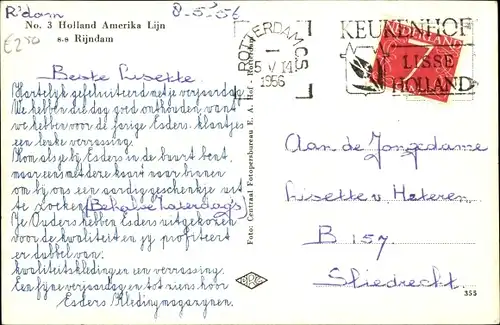 R'dam
8-5-'56
No. 3 Holland Amerika Lijn
s-s Rijndam
ROTTERDAM C.S.
5 V 14
1956
KEUKENHOF
LISSE
HOLLAND
NEDERLAND
7
Beste Lisette
Hartelijk gefeliciteerd met je verjaardag.
We hebben die dag goed onthouden, want
we hebben voor de jarige Esders-klantjes
een leuke verrassing.
Kom als je bij Esders in de buurt bent,
maar eens met deze kaart naar binnen
om bij ons een aardig geschenkje uit
te zoeken (Behalve Zaterdags)
Je Ouders hebben Esders uitgekozen
voor de kwaliteit en jy profiteert
er dubbel van:
kwaliteitskleding en een verrassing.
Een fijne verjaardag en tot ziens hoor
Esders Kledingmagazynen.
Foto: Centraal Fotopersbureau E. A. Hof
Aan de Jongedame
Lisette v. Heteren
B 157
Sliedrecht.
355